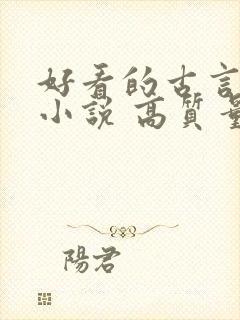 好看的古言
小說 高質量
陽君